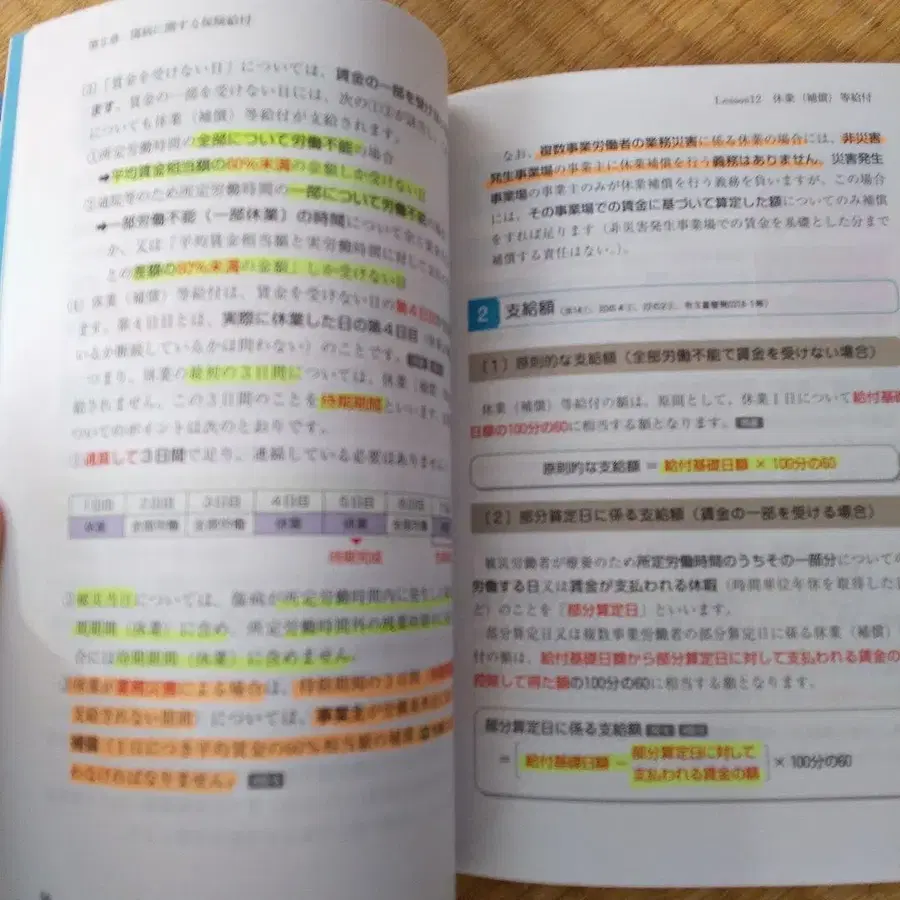 第5章 傷病に関する保険給付
(3)「賃金を受けない日」については、賃金の一部を受け
ます。賃金の一部を受けない日には、次の①②が該当し、
についても休業（補償）等給付が支給されます。
①所定労働時間の全部について労働不能の場合
➡平均賃金相当額の60％未満の金額しか受けない日
②通院等のため所定労働時間の一部について労働不能
➡一部労働不能（一部休業）の時間について全く賃金
か、又は「平均賃金相当額と実労働時間に対して
との差額の60％未満の金額」しか受けない日
(4) 休業（補償）等給付は、賃金を受けない日の第4日目
ます。第4日目とは、実際に休業した日の第4日目
いるか断続しているかは問わない）のことです。
つまり、休業の最初の3日間については、休業（補償
給されません。この3日間のことを待期期間といいます。
ついてのポイントは次のとおりです。
①通算して3日間で足り、連続している必要はありません
1日目 2日目 3日目 4日目 5日目 6日目
休業 全部労働 全部労働 休業 休業 全部労働
待期完成
②被災当日については、傷病が所定労働時間内に発生
期期間（休業）に含め、所定労働時間外の残業時間
合には待期期間（休業）に含めません。
③休業が業務災害による場合は、待期期間の3日間
支給されない期間）については、事業主が労働基準法
補償（1日につき平均賃金の60％相当額の補償
わなければなりません。
Lesson12 休業（補償）等給付
なお、複数事業労働者の業務災害に係る休業の場合には、非災害
発生事業場の事業主に休業補償を行う義務はありません。災害発生
事業場の事業主のみが休業補償を行う義務を負いますが、この場合
には、その事業場での賃金に基づいて算定した額についてのみ補償
をすれば足ります（非災害発生事業場での賃金を基礎とした分まで
補償する責任はない。）。
2 支給額
（1）原則的な支給額（全部労働不能で賃金を受けない場合）
休業（補償）等給付の額は、原則として、休業1日について給付基礎
日額の100分の60に相当する額となります。
原則的な支給額 ＝ 給付基礎日額 × 100分の60
（2）部分算定日に係る支給額（賃金の一部を受ける場合）
被災労働者が療養のため所定労働時間のうちその一部分について
労働する日又は賃金が支払われる休暇（時間単位年休を取得した
ど）のことを「部分算定日」といいます。
部分算定日又は複数事業労働者の部分算定日に係る休業（補償）
付の額は、給付基礎日額から部分算定日に対して支払われる賃金の
控除して得た額の100分の60に相当する額となります。
部分算定日に係る支給額
＝ 給付基礎日額 － 部分算定日に対して
支払われる賃金の額 × 100分の60